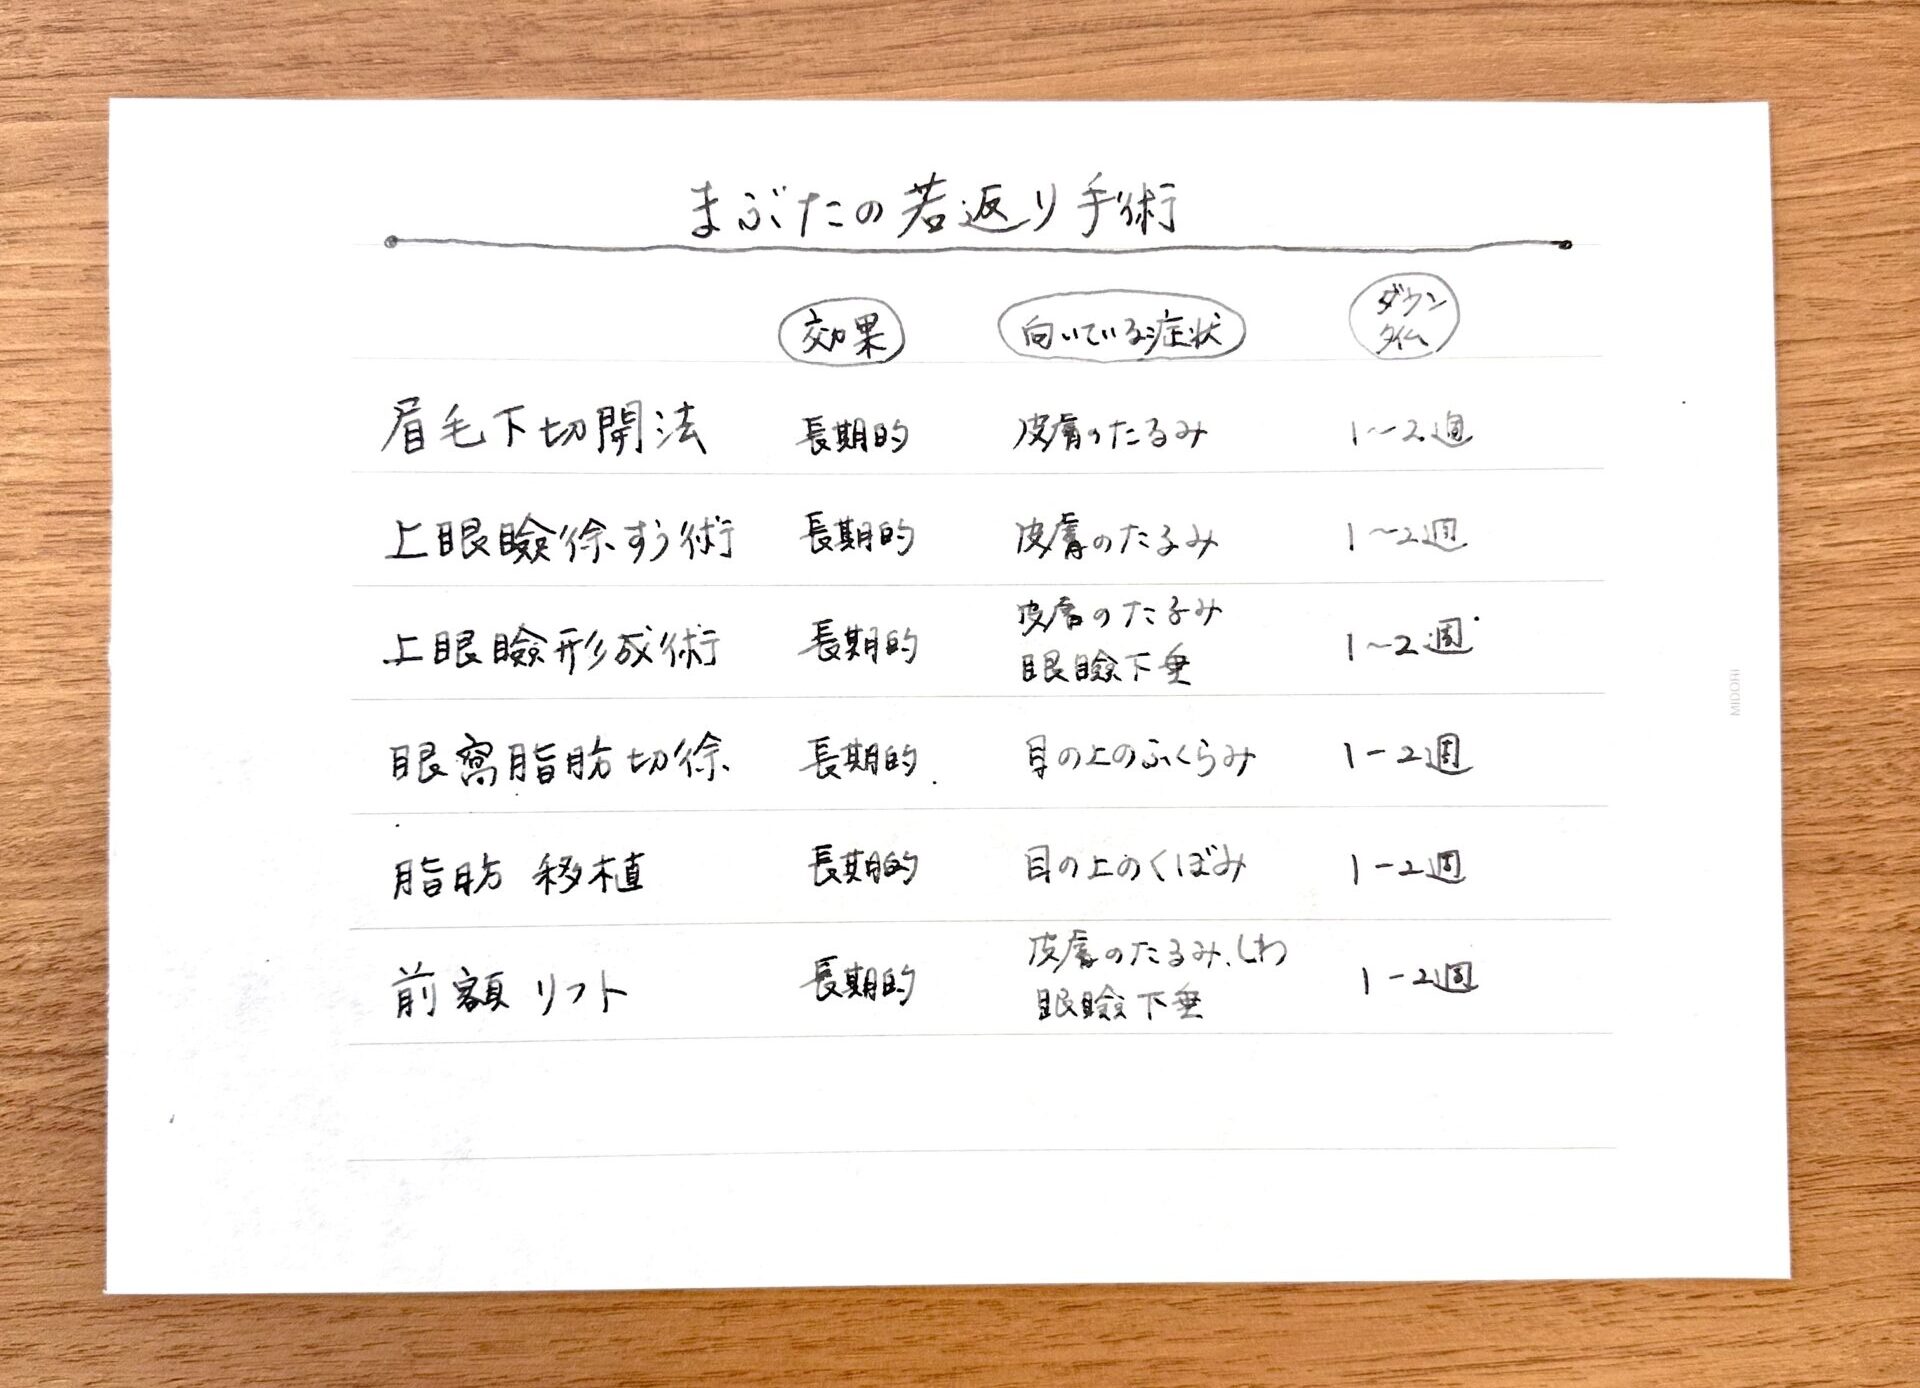 まぶたの若返り手術
効果 向いている症状 ダウンタイム
眉毛下切開法 長期的 皮膚のたるみ 1〜2週
上眼瞼除すう術 長期的 皮膚のたるみ 1〜2週
上眼瞼形成術 長期的 皮膚のたるみ 1〜2週
眼瞼下垂
眼窩脂肪切除 長期的 目の上のふくらみ 1-2週
脂肪移植 長期的 目の上のくぼみ 1-2週
前額リフト 長期的 皮膚のたるみ、しわ 1-2週
眼瞼下垂
MIDORI